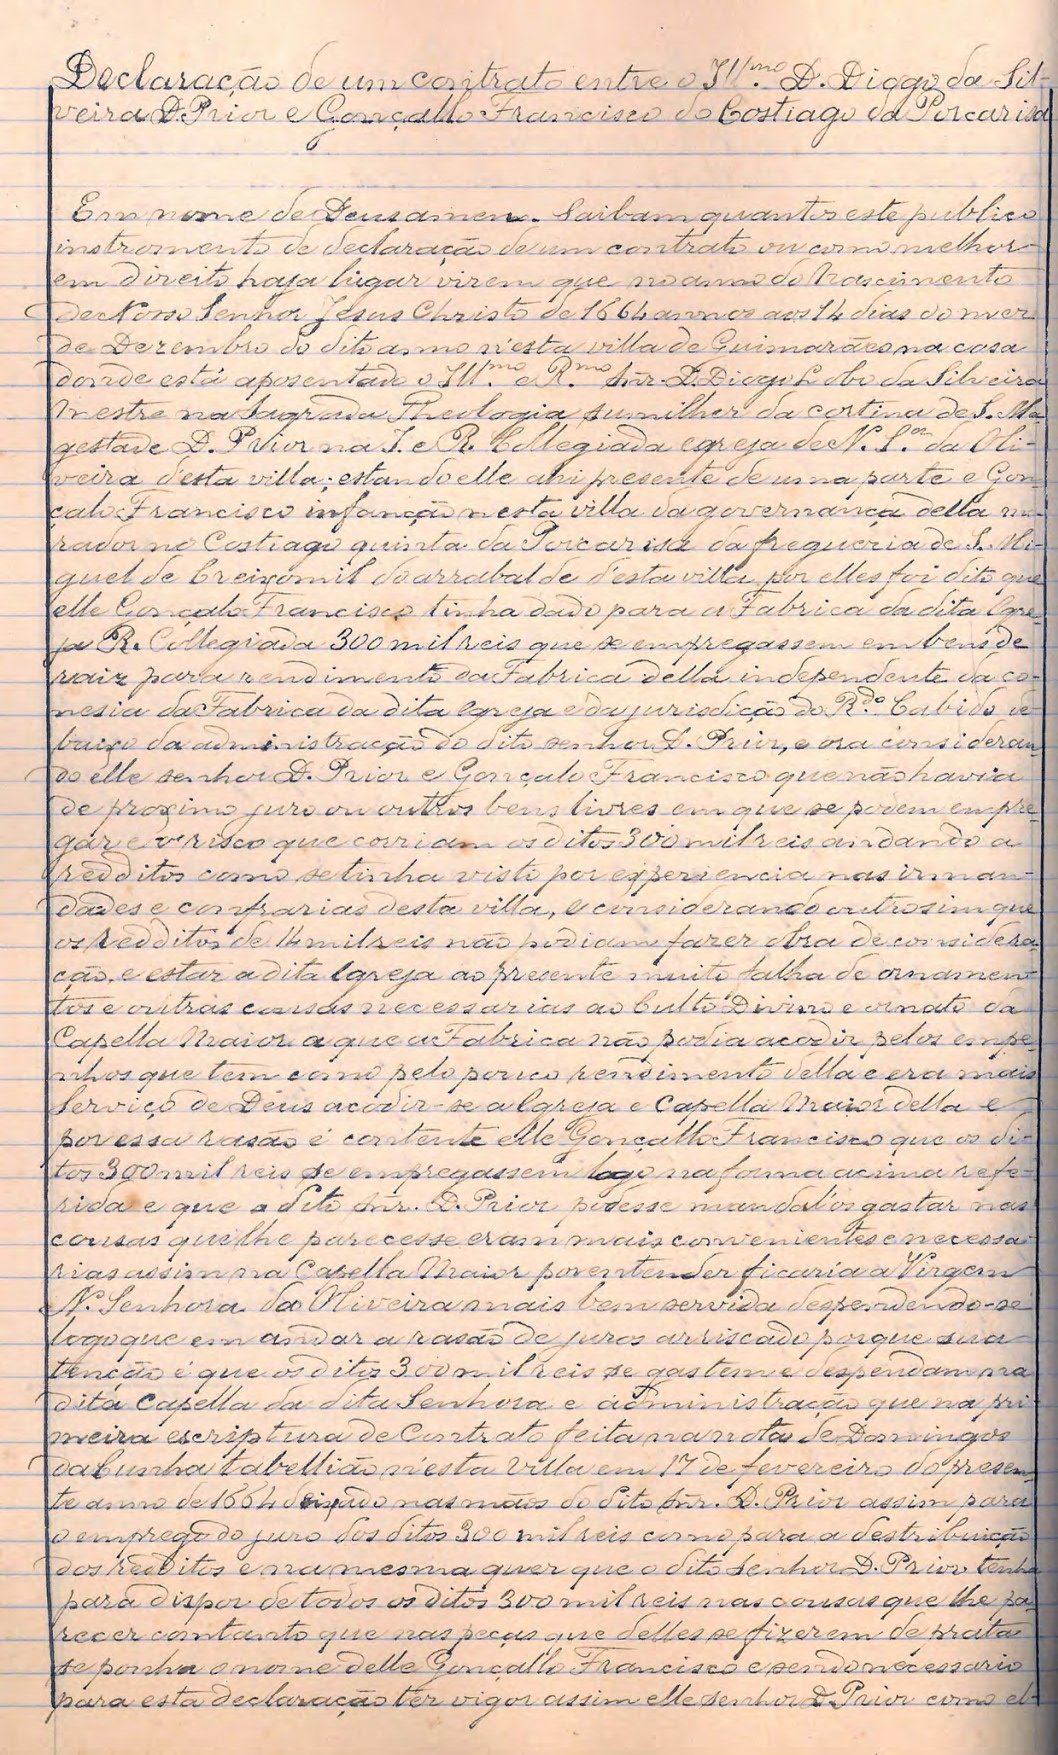 Declaração de um contrato entre o Ill.mo D. Diogo da Sil-
veira D. Prior e Gonçallo Francisco do Costiago da Porcarisa
Em nome de Deus amen. Saibam quantos este publico
instromento de declaração de um contrato ou como melhor
em direito haja lugar virem que no anno do Nascimento
de Nosso Senhor Jesus Christo de 1664 annos aos 14 dias do mez
de Dezembro do dito anno n'esta villa de Guimarães na casa
donde está aposentado o Ill.mo e R.mo Snr. D. Diogo Lobo da Silveira
Mestre na Sagrada Theologia sumilher da cortina de S. Ma-
gestade D. Prior na I. e R. Collegiada egreja de N. S.ra da Oli-
veira d'esta villa; estando elle ahi presente de uma parte e Gon-
çalo Francisco infanção nesta villa da governança della mo-
rador no Costiago quinta da Porcarisa da freguezia de S. Mi-
guel de Creixomil do arrabalde d'esta villa, por elles foi dito que
elle Gonçalo Francisco tinha dado para a Fabrica da dita Egre-
ja R. Collegiada 300 mil reis que se empregassem em bens de
raiz para rendimento da Fabrica della independente da co-
nesia da Fabrica da dita Egreja e da jurisdicção do R.do Cabido de-
baixo da administracção do dito senhor D. Prior, e ora consideran-
do elle senhor D. Prior e Gonçalo Francisco que não havia
de proximo juro ou outros bens livres em que se podem empre-
gar e o risco que corriam os ditos 300 mil reis andando a
redditos como se tinha visto por experiencia nas irman-
dades e confrarias desta villa, e considerando outrosim que
os redditos de 14 mil reis não podiam fazer obra de considera-
ção, e estar a dita Egreja ao presente muito falha de ornamen-
tos e outras cousas necessarias ao Culto Divino e ornato da
Capella Maior a que a Fabrica não podia acodir pelos empe-
nhos que tem como pelo pouco rendimento della e era mais
Serviço de Deus acodir-se a Egreja e Capella Maior della e
por essa rasão é contente elle Gonçallo Francisco que os di-
tos 300 mil reis se empregassem logo na forma acima refe-
rida e que o dito Snr. D. Prior podesse mandal'os gastar nas
cousas que lhe parecesse eram mais convenientes e necessa-
rias assim na Capella Maior por entender ficaria a Virgem
N.a Senhora da Oliveira mais bem servida despendendo-se
logo que em andar a rasão de juros arriscado porque sua
tenção é que os ditos 300 mil reis se gastem e despendam na
dita Capella da dita Senhora e administração que na pri-
meira escriptura de Contrato feita na nota de Domingos
da Cunha tabellião n'esta Villa em 17 de fevereiro do presen-
te anno de 1664 deixado nas mãos do dito Snr. D. Prior assim para
o emprego do juro dos ditos 300 mil reis como para a destribuição
dos redditos e na mesma quer que o dito Senhor D. Prior tenha
para dispor de todos os ditos 300 mil reis nas cousas que lhe pa-
recer comtanto que nas peças que delles se fizerem de prata
se ponha o nome delle Gonçallo Francisco e sendo necessario
para esta declaração ter vigor assim elle Senhor D. Prior como el-